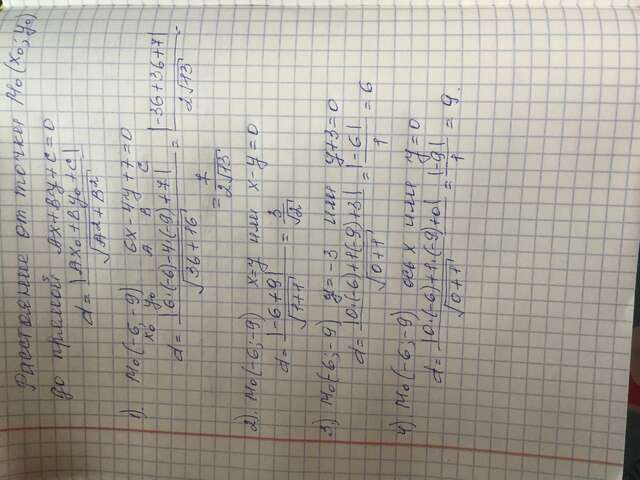 Расстояние от точки M₀(x₀; y₀)
до прямой Ax+By+C=0
d = |Ax₀+By₀+C| / √A²+B²
1). M₀(-6; -9) 6x-4y+7=0
x₀ y₀ A B C
d = |6·(-6)-4(-9)+7| / √36+16 = |-36+36+7| / 2√13 =
= 7 / 2√13
2). M₀(-6; -9) x=y или x-y=0
d = |-6+9| / √1+1 = 3 / √2
3). M₀(-6; -9) y=-3 или y+3=0
d = |0·(-6)+1(-9)+3| / √0+1 = |-6| / 1 = 6
4) M₀(-6; -9) ось x или y=0
d = |0·(-6)+1·(-9)+0| / √0+1 = |-9| / 1 = 9.